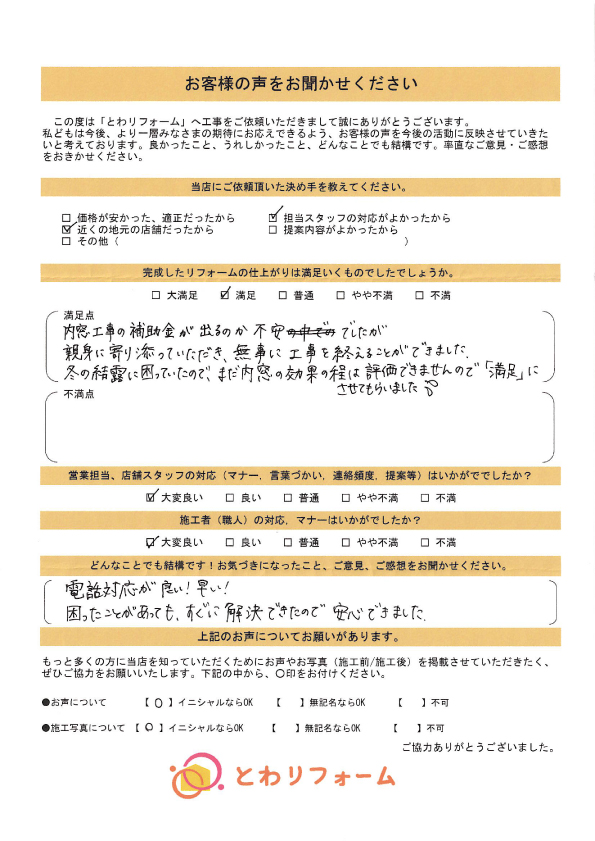 お客様の声をお聞かせください
この度は「とわリフォーム」へ工事をご依頼いただきまして誠にありがとうございます。
私どもは今後、より一層みなさまの期待にお応えできるよう、お客様の声を今後の活動に反映させていきた
いと考えております。良かったこと、うれしかったこと、どんなことでも結構です。率直なご意見・ご感想
をおきかせください。
当店にご依頼頂いた決め手を教えてください。
□ 価格が安かった、適正だったから ☑ 担当スタッフの対応がよかったから
☑ 近くの地元の店舗だったから □ 提案内容がよかったから
□ その他（ ）
完成したリフォームの仕上がりは満足いくものでしたでしょうか。
□ 大満足 ☑ 満足 □ 普通 □ やや不満 □ 不満
満足点
内窓工事の補助金が出るのか不安でしたが
親身に寄り添っていただき、無事に工事を終えることができました。
冬の結露に困っていたので、まだ内窓の効果の程は評価できませんので「満足」に
させてもらいました
不満点
営業担当、店舗スタッフの対応（マナー、言葉づかい、連絡頻度、提案等）はいかがででしたか？
☑ 大変良い □ 良い □ 普通 □ やや不満 □ 不満
施工者（職人）の対応、マナーはいかがでしたか？
☑ 大変良い □ 良い □ 普通 □ やや不満 □ 不満
どんなことでも結構です！お気づきになったこと、ご意見、ご感想をお聞かせください。
電話対応が良い！早い！
困ったことがあっても、すぐに解決できたので安心できました。
上記のお声についてお願いがあります。
もっと多くの方に当店を知っていただくためにお声やお写真（施工前/施工後）を掲載させていただきたく、
ぜひご協力をお願いいたします。下記の中から、〇印をお付けください。
●お声について 【 〇 】イニシャルならOK 【 】無記名ならOK 【 】不可
●施工写真について 【 〇 】イニシャルならOK 【 】無記名ならOK 【 】不可
ご協力ありがとうございました。
とわリフォーム